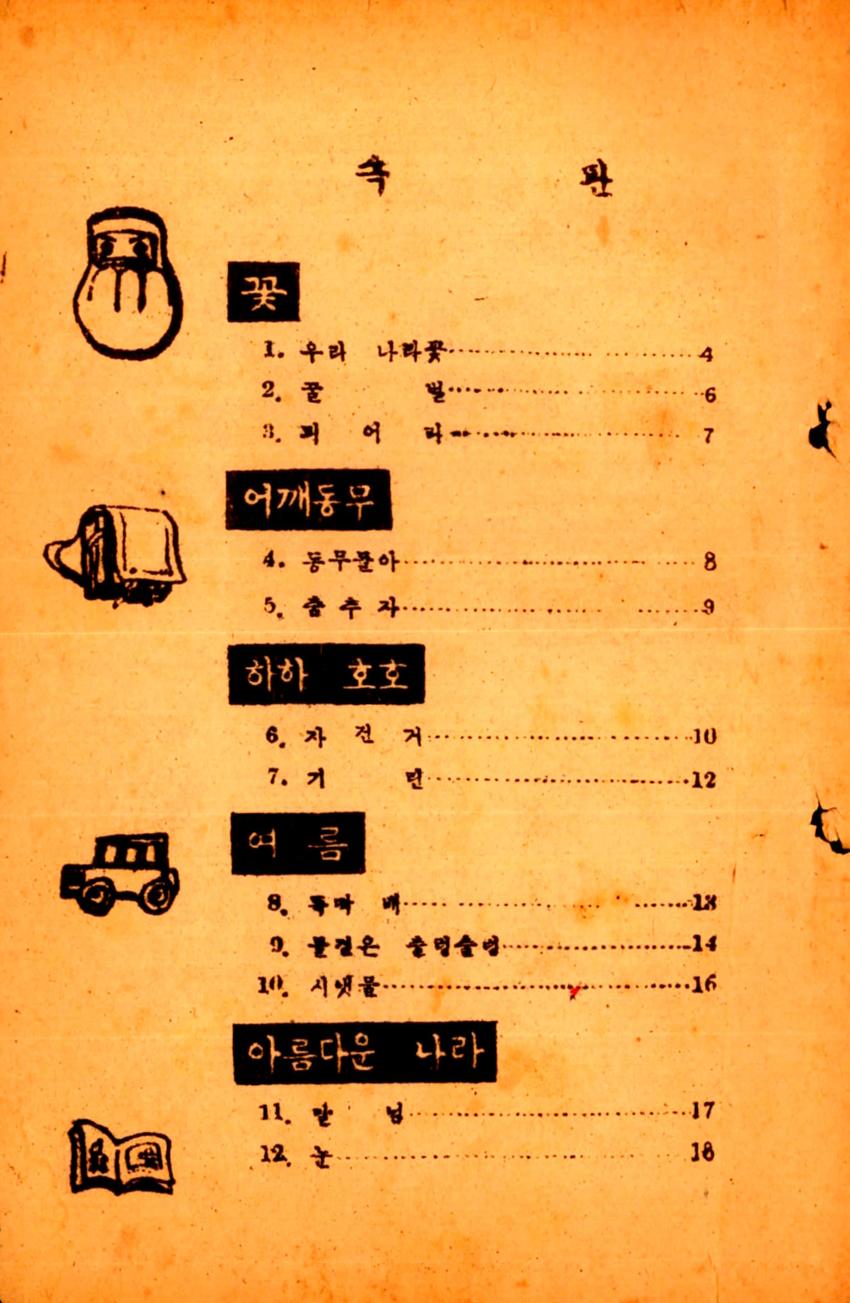 속 판
꽃
1. 우리 나라꽃 4
2. 꿀 벌 6
3. 어 리 7
어깨동무
4. 동무돌아 8
5. 춤 추 자 9
하하 호호
6. 자 전 거 10
7. 기 12
여 름
8. 배 13
9. 물결은 출렁출렁 14
10. 시냇물 16
아름다운 나라
11. 님 17
12. 눈 18